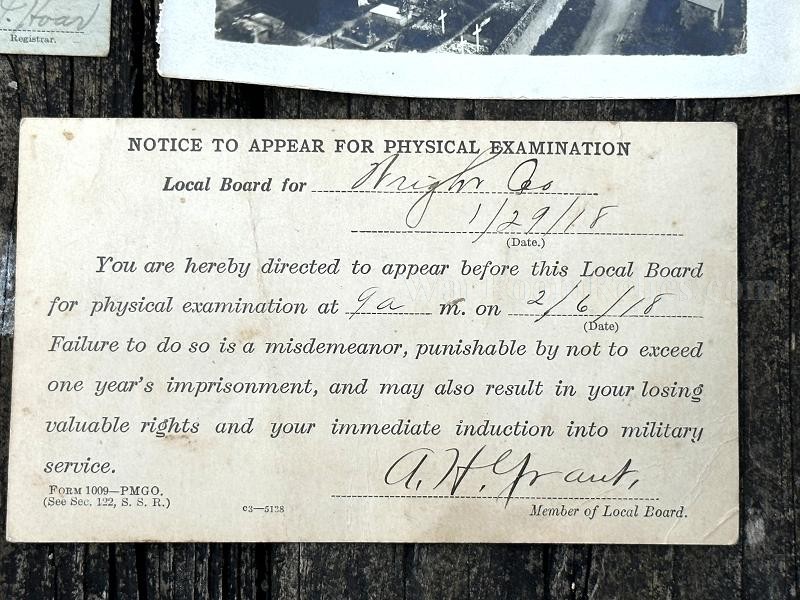 Hoar
Registrar.
NOTICE TO APPEAR FOR PHYSICAL EXAMINATION
Local Board for Wright Co
1/29/18
(Date.)
You are hereby directed to appear before this Local Board
for physical examination at 9 a m. on 2/6/18
(Date)
Failure to do so is a misdemeanor, punishable by not to exceed
one year's imprisonment, and may also result in your losing
valuable rights and your immediate induction into military
service.
A. H. Grant,
Form 1009—PMGO.
(See Sec. 122, S. S. R.)
c3—5138
Member of Local Board.